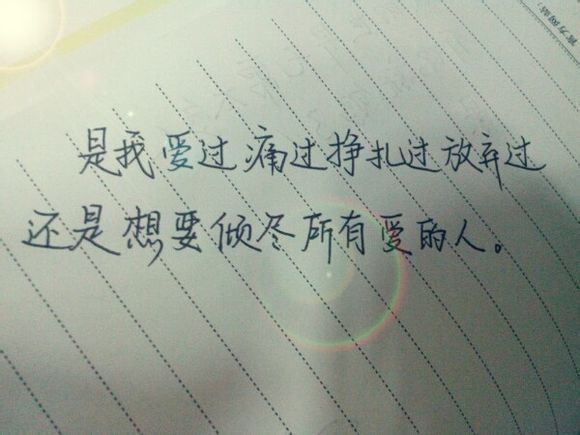 是我爱过痛过挣扎过放弃过
还是想要倾尽所有爱的人。
官方网站: